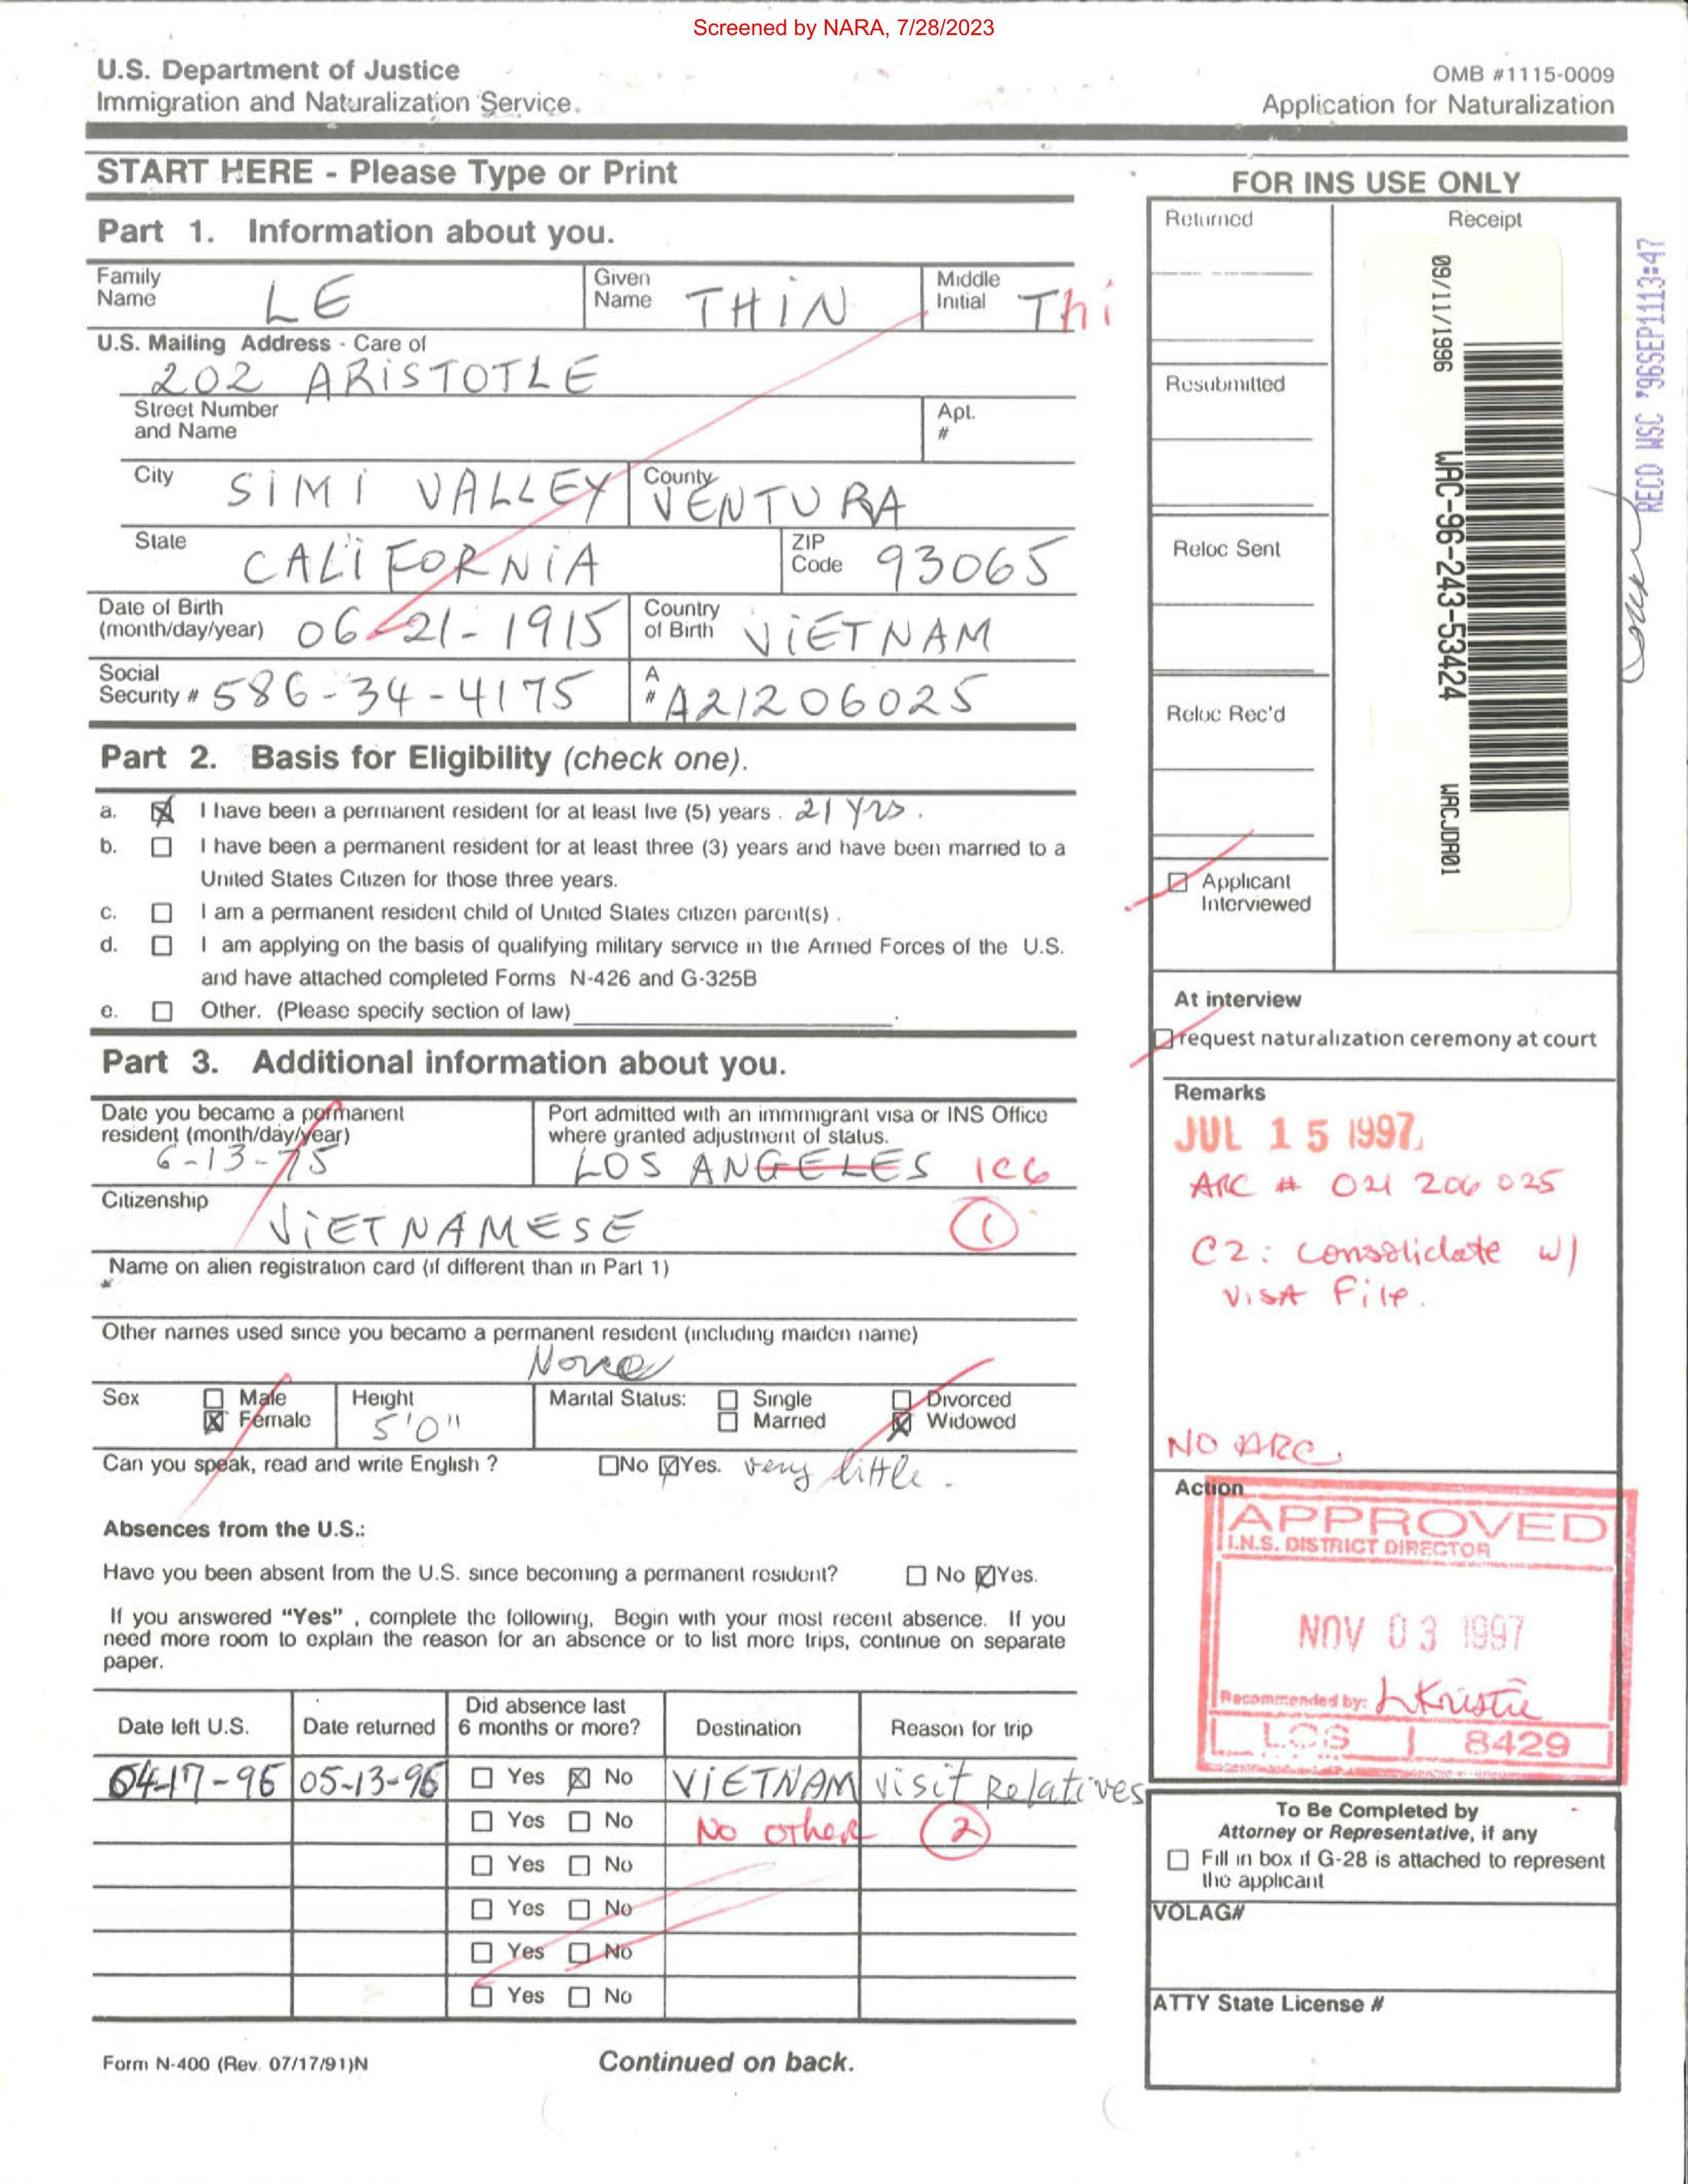 Screened by NARA, 7/28/2023
U.S. Department of Justice
Immigration and Naturalization Service
OMB #1115-0009
Application for Naturalization
START HERE - Please Type or Print
Part 1. Information about you.
Family Name LE
Given Name THIN
Middle Initial Thi
U.S. Mailing Address - Care of
202 ARISTOTLE
Street Number and Name
Apt. #
City SIMI VALLEY
County VENTURA
State CALIFORNIA
ZIP Code 93065
Date of Birth (month/day/year) 06-21-1915
Country of Birth VIETNAM
Social Security # 586-34-4175
A # A21206025
Part 2. Basis for Eligibility (check one).
a. I have been a permanent resident for at least five (5) years. 21 yrs.
b. I have been a permanent resident for at least three (3) years and have been married to a
United States Citizen for those three years.
c. I am a permanent resident child of United States citizen parent(s).
d. I am applying on the basis of qualifying military service in the Armed Forces of the U.S.
and have attached completed Forms N-426 and G-325B
e. Other. (Please specify section of law)
Part 3. Additional information about you.
Date you became a permanent resident (month/day/year)
6-13-75
Port admitted with an immmigrant visa or INS Office
where granted adjustment of status.
LOS ANGELES ICG
Citizenship
VIETNAMESE
1
Name on alien registration card (if different than in Part 1)
Other names used since you became a permanent resident (including maiden name)
None
Sex Male Female
Height 5'0"
Marital Status: Single Married Divorced Widowed
Can you speak, read and write English ? No Yes. very little.
Absences from the U.S.:
Have you been absent from the U.S. since becoming a permanent resident? No Yes.
If you answered "Yes" , complete the following, Begin with your most recent absence. If you
need more room to explain the reason for an absence or to list more trips, continue on separate
paper.
Date left U.S. Date returned Did absence last 6 months or more? Destination Reason for trip
04-17-96 05-13-96 Yes No VIETNAM visit Relatives
Yes No No other 2
Yes No
Yes No
Yes No
Yes No
Form N-400 (Rev. 07/17/91)N
Continued on back.
FOR INS USE ONLY
Returned
Receipt
Resubmitted
Reloc Sent
Reloc Rec'd
09/11/1996 WAC-96-243-53424 WACJDA01
RECD WSC '96SEP1113:47
Applicant Interviewed
At interview
request naturalization ceremony at court
Remarks
JUL 15 1997
ARC # 021 206 025
C2: consolidate w/
VISA File.
NO ARC.
Action
APPROVED
I.N.S. DISTRICT DIRECTOR
NOV 03 1997
Recommended by: LKristie
LOS 8429
To Be Completed by
Attorney or Representative, if any
Fill in box if G-28 is attached to represent
the applicant
VOLAG#
ATTY State License #